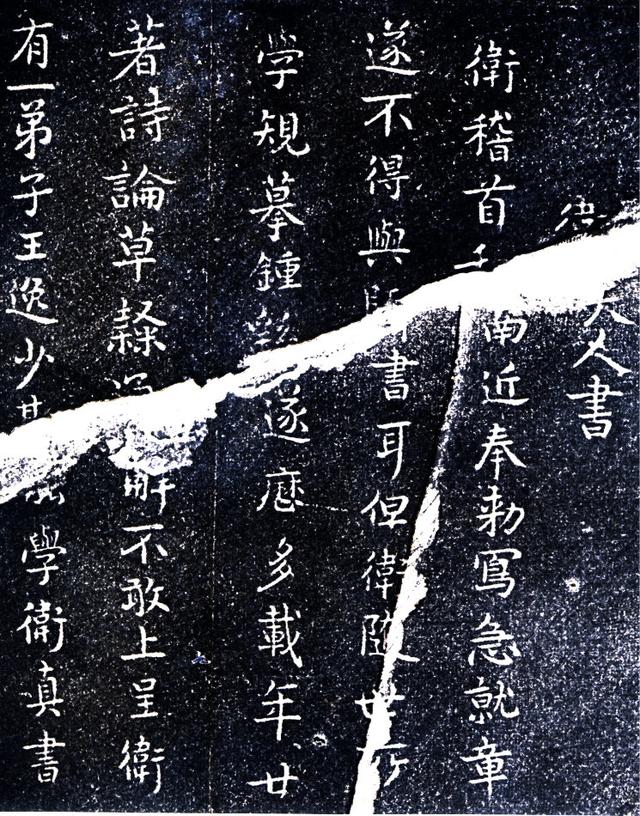 人書
衛稽首南近奉勅寫急就章
遂不得與書耳但衛隨世所
學規摹鍾遂歷多載年廿
著詩論草隸解不敢上呈衛
有一弟子王逸少學衛真書